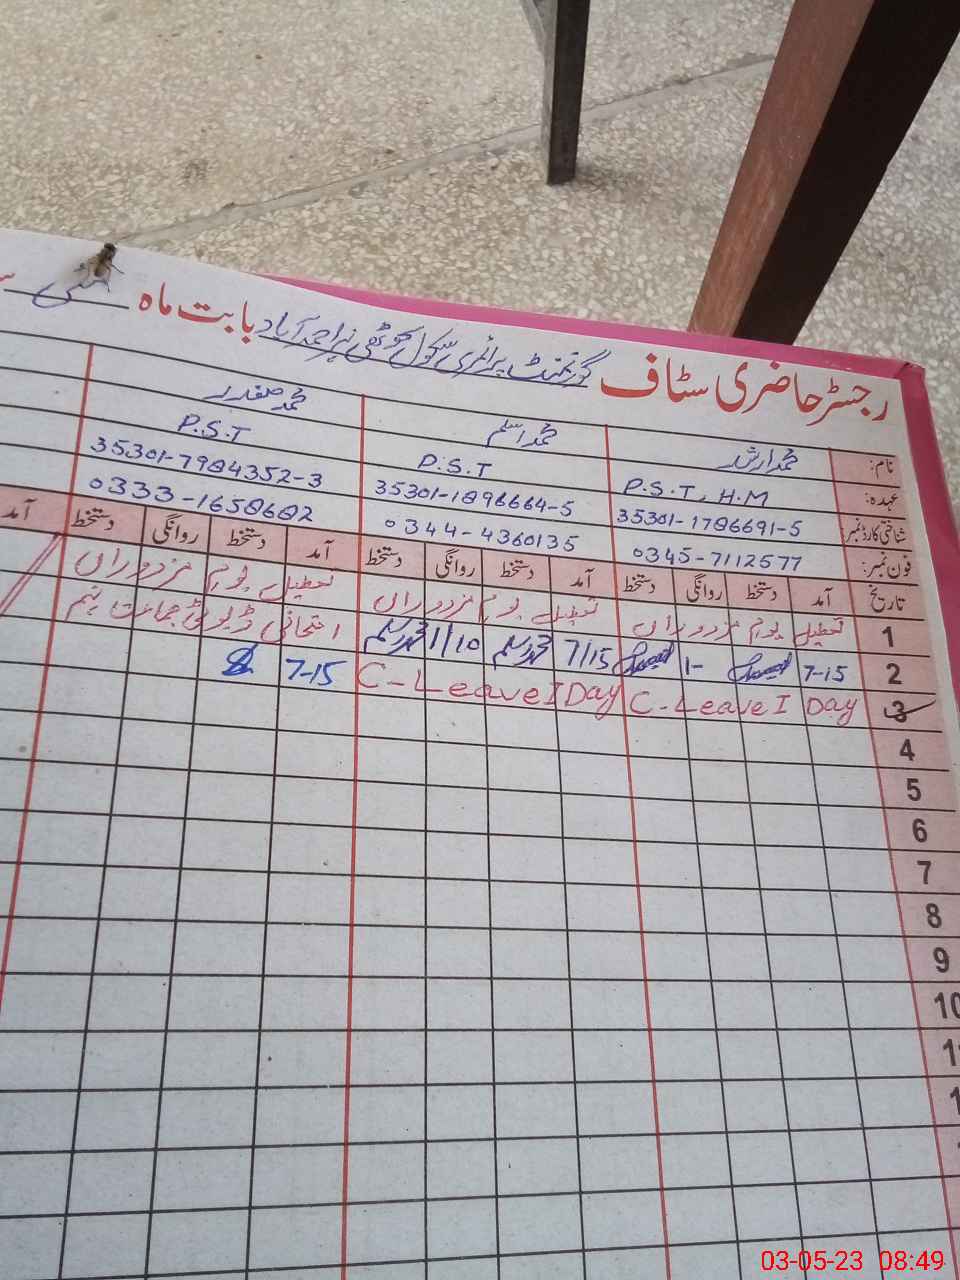 رجسٹر حاضری سٹاف گورنمنٹ پرائمری سکول کوٹھی نہر احمد آباد بابت ماہ مئی
نام: محمد ارشد محمد اسلم محمد صفدر
عہدہ: P.S.T, H.M P.S.T P.S.T
شناختی کارڈ نمبر: 35301-1786691-5 35301-1898664-5 35301-7984352-3
فون نمبر: 0345-7112577 0344-4360135 0333-1658682
تاریخ آمد دستخط روانگی دستخط آمد دستخط روانگی دستخط آمد دستخط روانگی دستخط آمد
1 تعطیل یوم مزدوراں تعطیل یوم مزدوراں تعطیل یوم مزدوراں
2 7-15 1- 7/15 محمد اسلم 1/10 محمد اسلم امتحانی ڈیوٹی جماعت نہم
3 C-Leave I Day C-Leave I Day 7-15
4
5
6
7
8
9
10
03-05-23 08:49